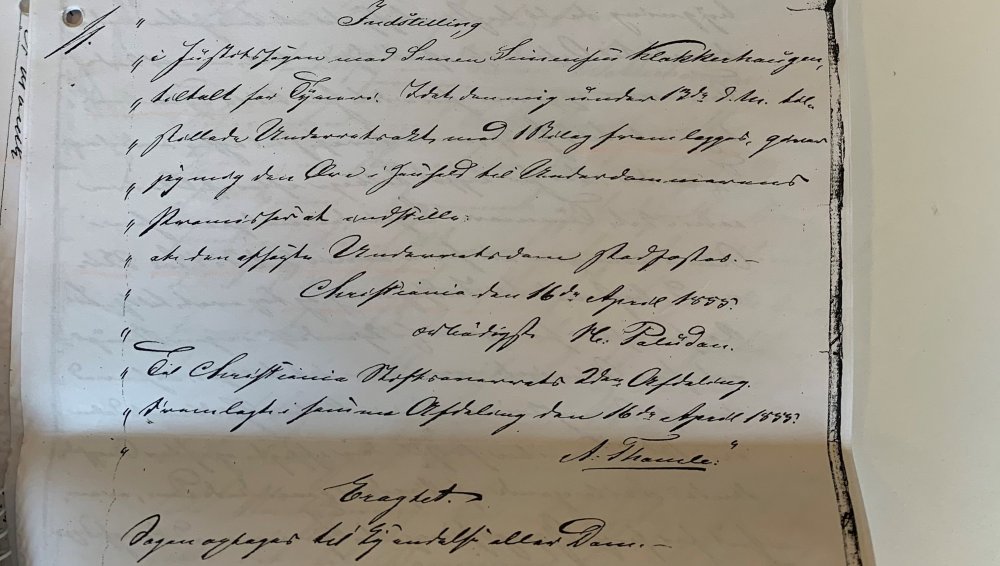 " Indstilling
" i Justitssagen mod Lauen Simensen Klokkerhaugen,
" tiltalt for Tyveri. Idet den mig under 13de d. M. til-
" stillede Underretsakt med 1 Bilag fremlægges, giver
" jeg mig den Ære i Henhold til Underdommerens
" Præmisser at indstille:
" at den afsagte Underretsdom stadfæstes.-
" Christiania den 16de April 1888.
" ærbødigst H. Paludan.
" Til Christiania Stiftsoverrets 2den Afdeling.
" Fremlagt i samme Afdeling den 16de April 1888.
" A. Thomle."
Eragtet.
Sagen optages til Kjendelse eller Dom.-